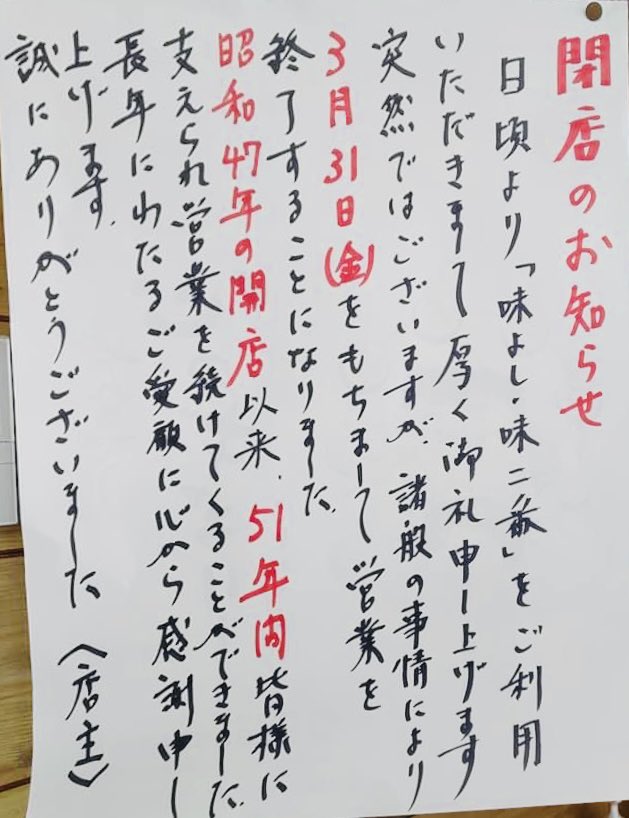 閉店のお知らせ
日頃より「味よし・味二番」をご利用
いただきまして厚く御礼申し上げます
突然ではございますが、諸般の事情により
3月31日(金)をもちまして営業を
終了することになりました。
昭和47年の開店以来、51年間皆様に
支えられ営業を続けてくることができました。
長年にわたるご愛顧に心から感謝申し
上げます。
誠にありがとうございました〈店主〉